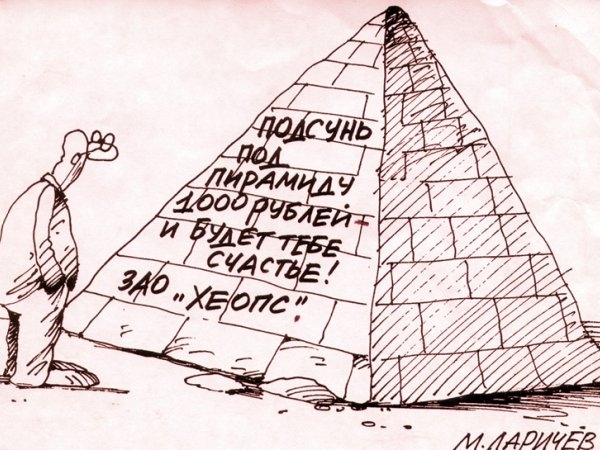 ПОДСУНЬ
ПОД
ПИРАМИДУ
1000 РУБЛЕЙ-
И БУДЕТ ТЕБЕ
СЧАСТЬЕ!
ЗАО „ХЕОПС".
М.ЛАРИЧЕВ